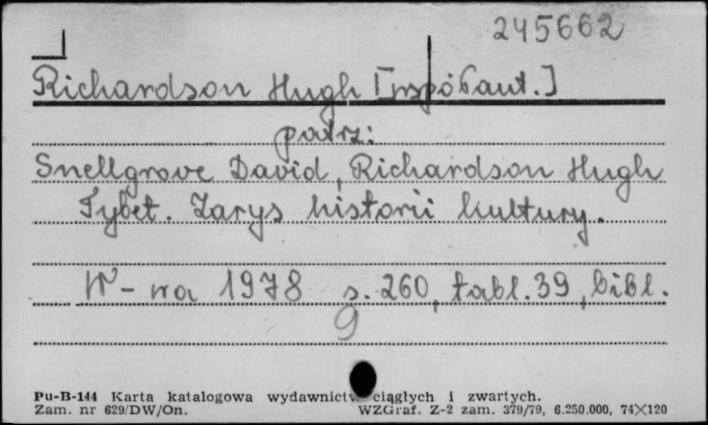 245662
Richardson Hugh [współaut.]
patrz:
Snellgrove David, Richardson Hugh
Tybet. Zarys historii kultury.
W-wa 1978 s. 260, tabl. 39, bibl.
9
Pu-B-144 Karta katalogowa wydawnictw ciągłych i zwartych.
Zam. nr 629/DW/On. WZGraf. Z-2 zam. 379/79, 6.250.000, 74×120